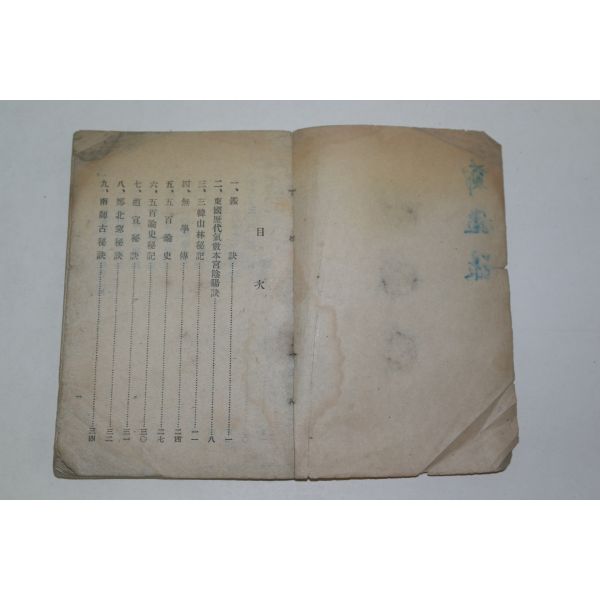 目次
一、鑑訣……一
二、東國歷代氣數本宮陰陽訣……八
三、三韓山林秘記……一一
四、無學傳……二四
五、五百論史……二七
六、五百論史秘記……三〇
七、道宣秘訣……三一
八、鄭北窓秘訣……三二
九、南師古秘訣……三四
一